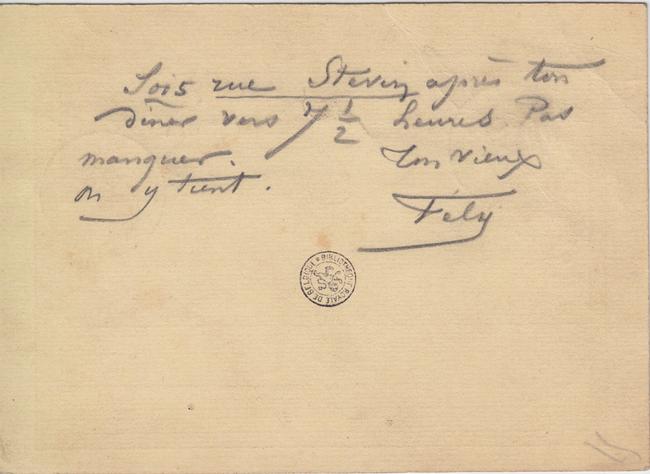 Sois rue Stevin après ton
dîner vers 7 1/2 heures. Pas
manquer. Ton vieux
on y tient. Fély
BIBLIOTHÈQUE ROYALE DE BELGIQUE